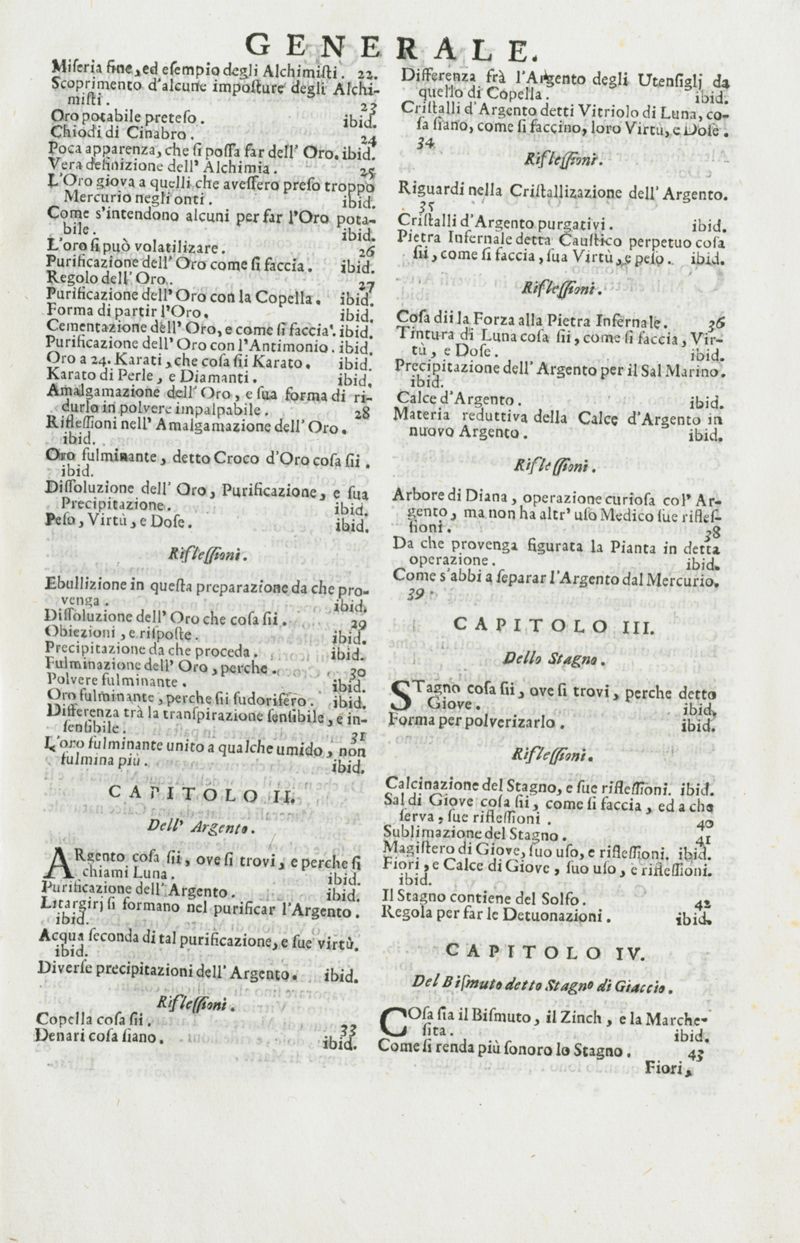 GENERALE.
Miſeria fine, ed eſempio degli Alchimiſti. 22.
Scoprimento d'alcune impoſture degli Alchi-
miſti. 23
Oro potabile preteſo. ibid.
Chiodi di Cinabro. 24
Poca apparenza, che ſi poſſa far dell' Oro. ibid.
Vera definizione dell' Alchimia. 25
L'Oro giova a quelli che aveſſero preſo troppo
Mercurio negli onti. ibid.
Come s'intendono alcuni per far l'Oro pota-
bile. ibid.
L'oro ſi può volatilizare. 26
Purificazione dell' Oro come ſi faccia. ibid.
Regolo dell' Oro. 27
Purificazione dell' Oro con la Copella. ibid.
Forma di partir l'Oro. ibid.
Cementazione dell' Oro, e come ſi faccia. ibid.
Purificazione dell' Oro con l'Antimonio. ibid.
Oro a 24. Karati, che coſa ſii Karato. ibid.
Karato di Perle, e Diamanti. ibid.
Amalgamazione dell' Oro, e ſua forma di ri-
durlo in polvere impalpabile. 28
Rifleſſioni nell' Amalgamazione dell' Oro.
ibid.
Oro fulminante, detto Croco d'Oro coſa ſii.
ibid.
Diſſoluzione dell' Oro, Purificazione, e ſua
Precipitazione. ibid.
Peſo, Virtù, e Doſe. ibid.
Rifleſſioni.
Ebullizione in queſta preparazione da che pro-
venga. ibid.
Diſſoluzione dell' Oro che coſa ſii. 29
Obiezioni, e riſpoſte. ibid.
Precipitazione da che proceda. ibid.
Fulminazione dell' Oro, perche. 30
Polvere fulminante. ibid.
Oro fulminante, perche ſii ſudorifero. ibid.
Differenza trà la tranſpirazione ſenſibile, e in-
ſenſibile. 31
L'oro fulminante unito a qualche umido, non
fulmina più. ibid.
CAPITOLO II.
Dell' Argento.
ARgento coſa ſii, ove ſi trovi, e perche ſi
chiami Luna. ibid.
Purificazione dell' Argento. ibid.
Litargirj ſi formano nel purificar l'Argento.
ibid.
Acqua ſeconda di tal purificazione, e ſue virtù.
ibid.
Diverſe precipitazioni dell' Argento. ibid.
Rifleſſioni.
Copella coſa ſii. 33
Denari coſa ſiano. ibid.
Differenza frà l'Argento degli Utenſiglj da
quello di Copella. ibid.
Criſtalli d'Argento detti Vitriolo di Luna, co-
ſa ſiano, come ſi faccino, loro Virtù, e Doſe.
34
Rifleſſioni.
Riguardi nella Criſtallizazione dell' Argento.
35
Criſtalli d'Argento purgativi. ibid.
Pietra Infernale detta Cauſtico perpetuo coſa
ſii, come ſi faccia, ſua Virtù, e peſo. ibid.
Rifleſſioni.
Coſa dii la Forza alla Pietra Infernale. 36
Tintura di Luna coſa ſii, come ſi faccia, Vir-
tù, e Doſe. ibid.
Precipitazione dell' Argento per il Sal Marino.
ibid.
Calce d'Argento. ibid.
Materia reduttiva della Calce d'Argento in
nuovo Argento. ibid.
Rifleſſioni.
Arbore di Diana, operazione curioſa col' Ar-
gento, ma non ha altr' uſo Medico ſue rifleſ-
ſioni. 38
Da che provenga figurata la Pianta in detta
operazione. ibid.
Come s'abbi a ſeparar l'Argento dal Mercurio.
39
CAPITOLO III.
Dello Stagno.
STagno coſa ſii, ove ſi trovi, perche detto
Giove. ibid.
Forma per polverizarlo. ibid.
Rifleſſioni.
Calcinazione del Stagno, e ſue rifleſſioni. ibid.
Sal di Giove coſa ſii, come ſi faccia, ed a che
ſerva, ſue rifleſſioni. 40
Sublimazione del Stagno. 41
Magiſtero di Giove, ſuo uſo, e rifleſſioni. ibid.
Fiori, e Calce di Giove, ſuo uſo, e rifleſſioni.
ibid.
Il Stagno contiene del Solfo. 42
Regola per far le Detuonazioni. ibid.
CAPITOLO IV.
Del Biſmuto detto Stagno di Giaccio.
COſa ſia il Biſmuto, il Zinch, e la Marche-
ſita. ibid.
Come ſi renda più ſonoro lo Stagno. 43
Fiori,